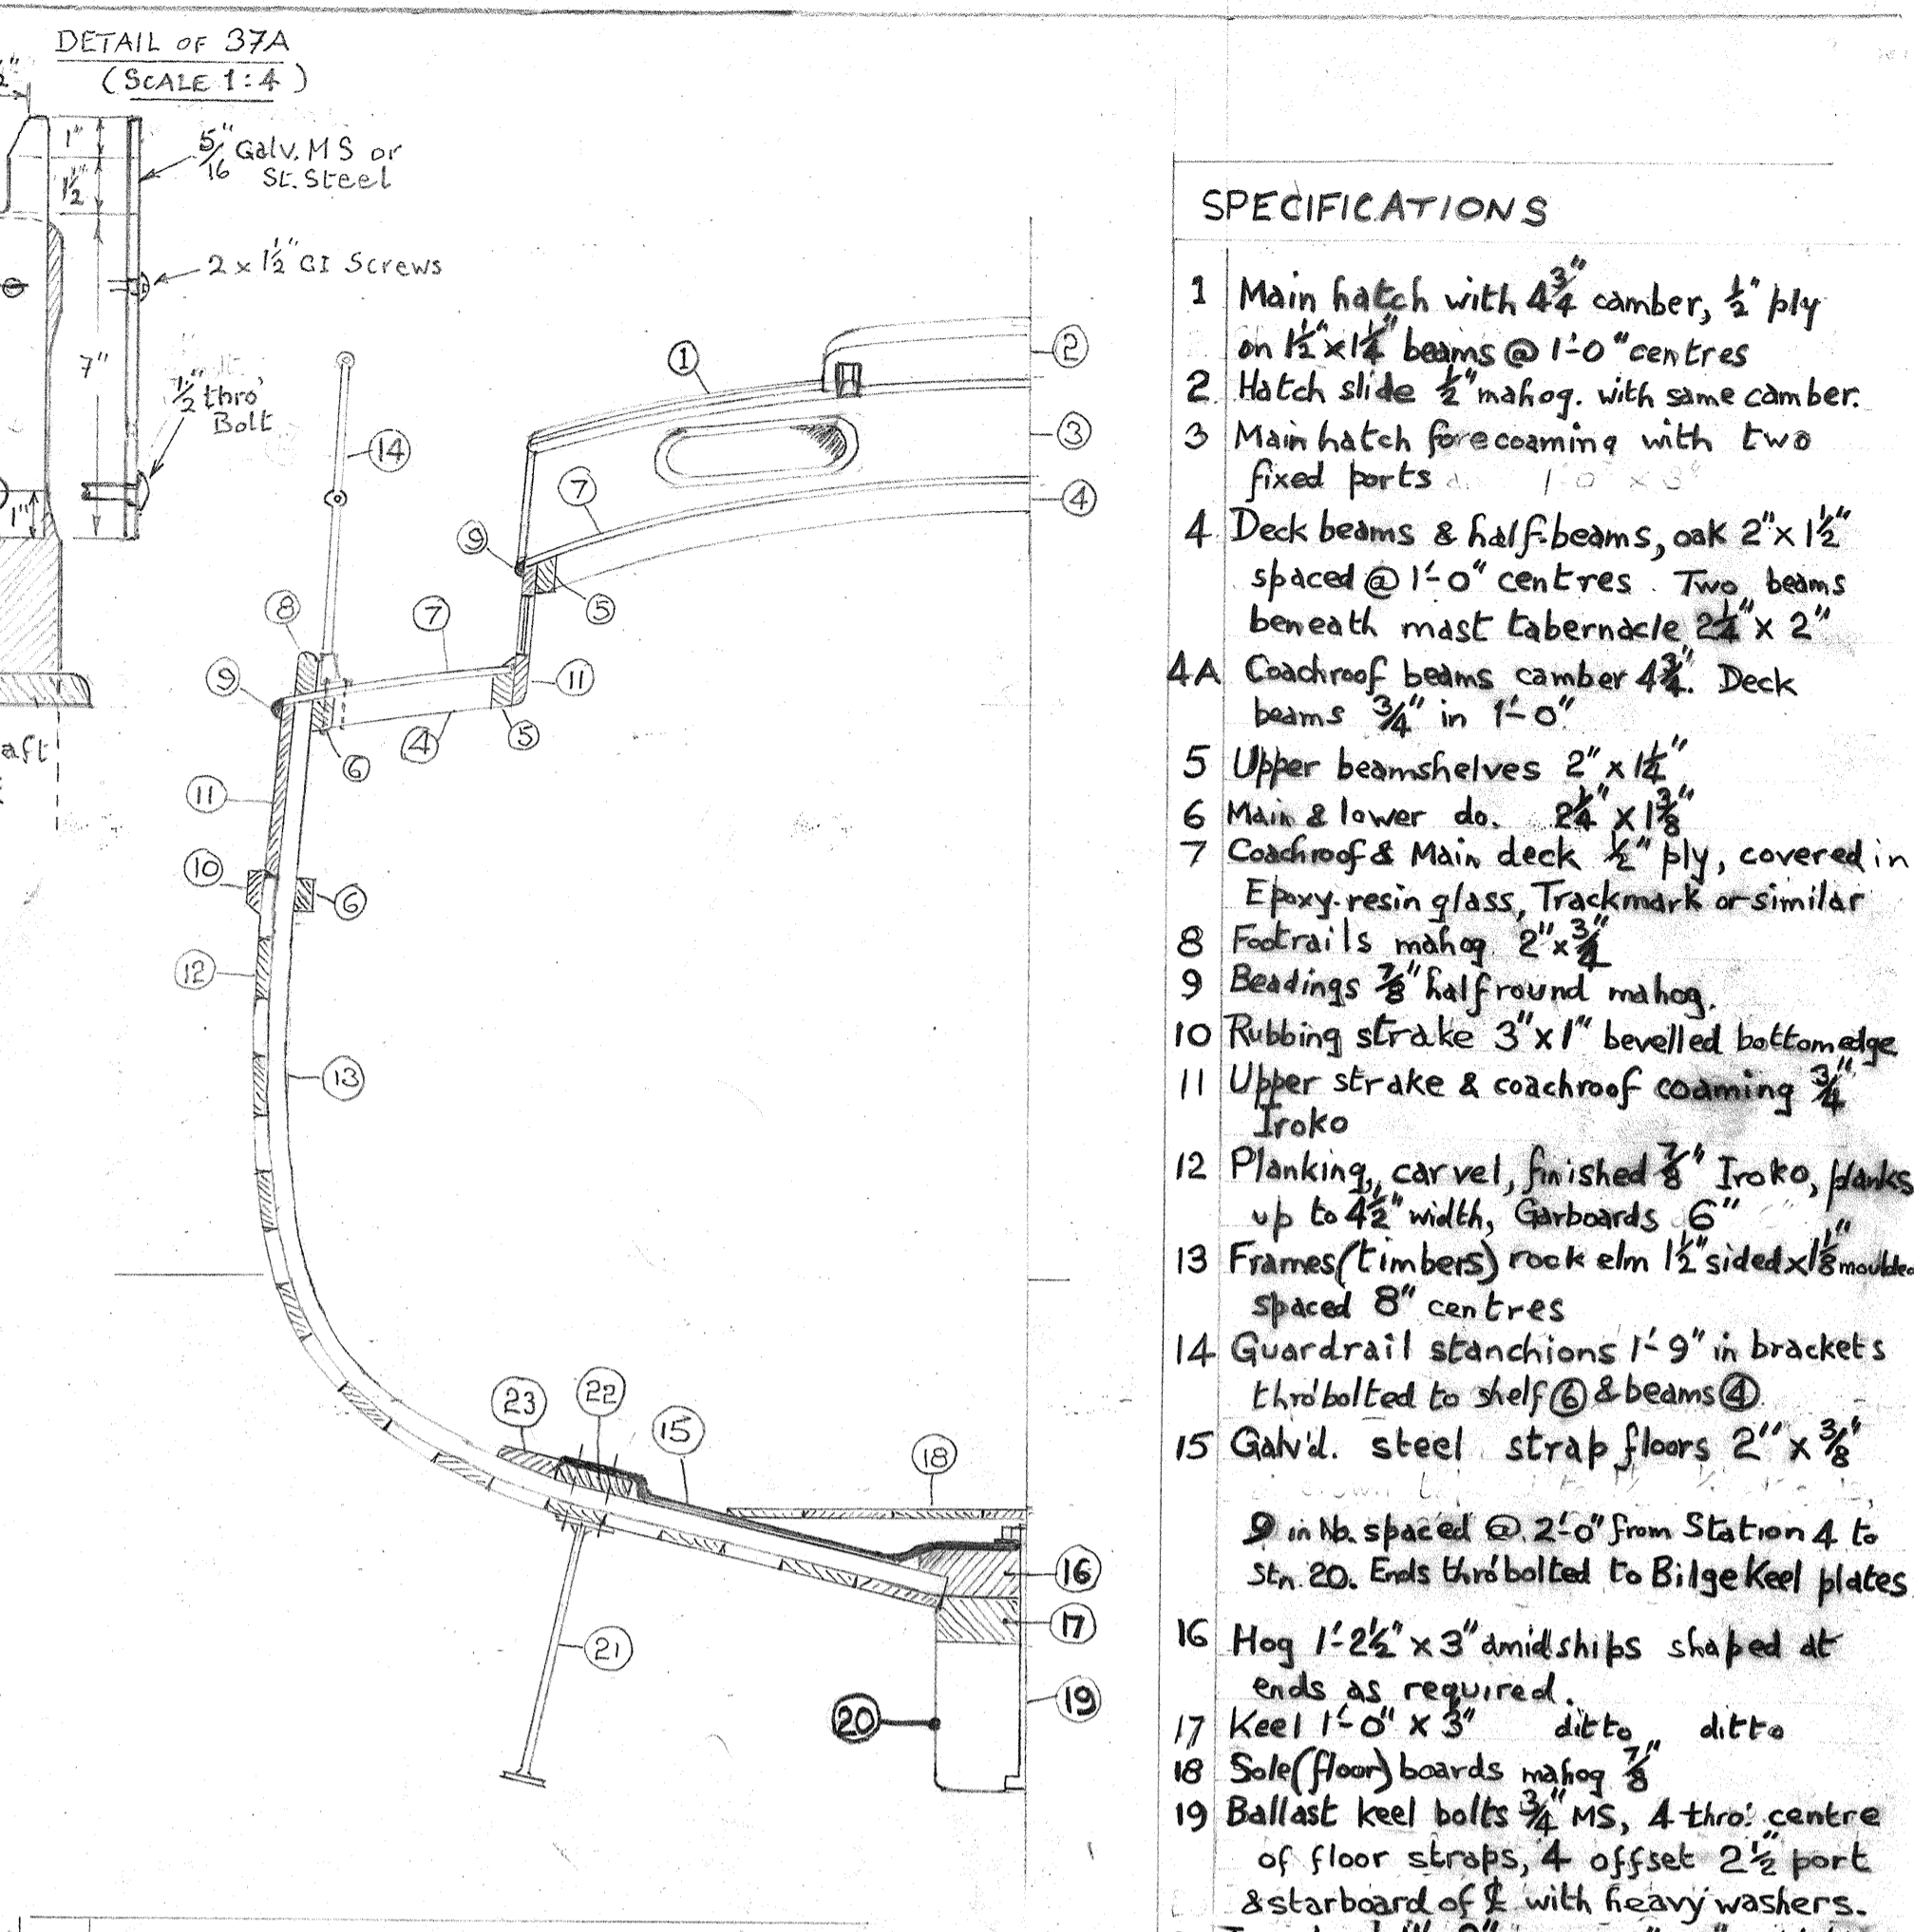 DETAIL OF 37A
(SCALE 1:4)
1"
1½"
7"
1"
5/16" Galv. MS or
St. Steel
2 x 1½" GI Screws
½" thro'
Bolt
aft
1
2
3
4
7
9
5
14
8
7
9
11
5
4
6
11
10
6
12
13
23
22
15
18
16
17
21
19
20
SPECIFICATIONS
1 Main hatch with 4¾" camber, ½" ply
on 1½" x 1¼" beams @ 1'-0" centres
2 Hatch slide ½" mahog. with same camber.
3 Main hatch forecoaming with two
fixed ports
4 Deck beams & half-beams, oak 2" x 1½"
spaced @ 1'-0" centres. Two beams
beneath mast tabernacle 2¼" x 2"
4A Coachroof beams camber 4¾". Deck
beams ¾" in 1'-0"
5 Upper beamshelves 2" x 1¼"
6 Main & lower do. 2¼" x 1⅜"
7 Coachroof & Main deck ½" ply, covered in
Epoxy-resin glass, Trackmark or similar
8 Footrails mahog 2" x ¾"
9 Beadings ⅞" half round mahog.
10 Rubbing strake 3" x 1" bevelled bottom edge
11 Upper strake & coachroof coaming ¾"
Iroko
12 Planking, carvel, finished ⅞" Iroko, planks
up to 4½" width, Garboards 6"
13 Frames (timbers) rock elm 1½" sided x 1⅛" moulded
spaced 8" centres
14 Guardrail stanchions 1'-9" in brackets
thro' bolted to shelf 6 & beams 4
15 Galv'd. steel strap floors 2" x ⅜"
9 in No. spaced @ 2'-0" from Station 4 to
Stn. 20. Ends thro' bolted to Bilge Keel plates
16 Hog 1'-2½" x 3" amidships shaped at
ends as required.
17 Keel 1'-0" x 3" ditto ditto
18 Sole (floor) boards mahog ⅞"
19 Ballast keel bolts ¾" MS, 4 thro' centre
of floor straps, 4 offset 2½" port
& starboard of ℄ with heavy washers.